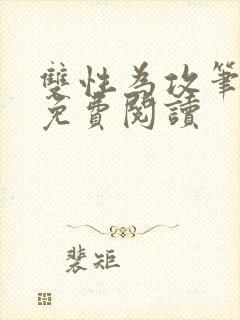 雙性為攻筆
免費閱讀
裴矩